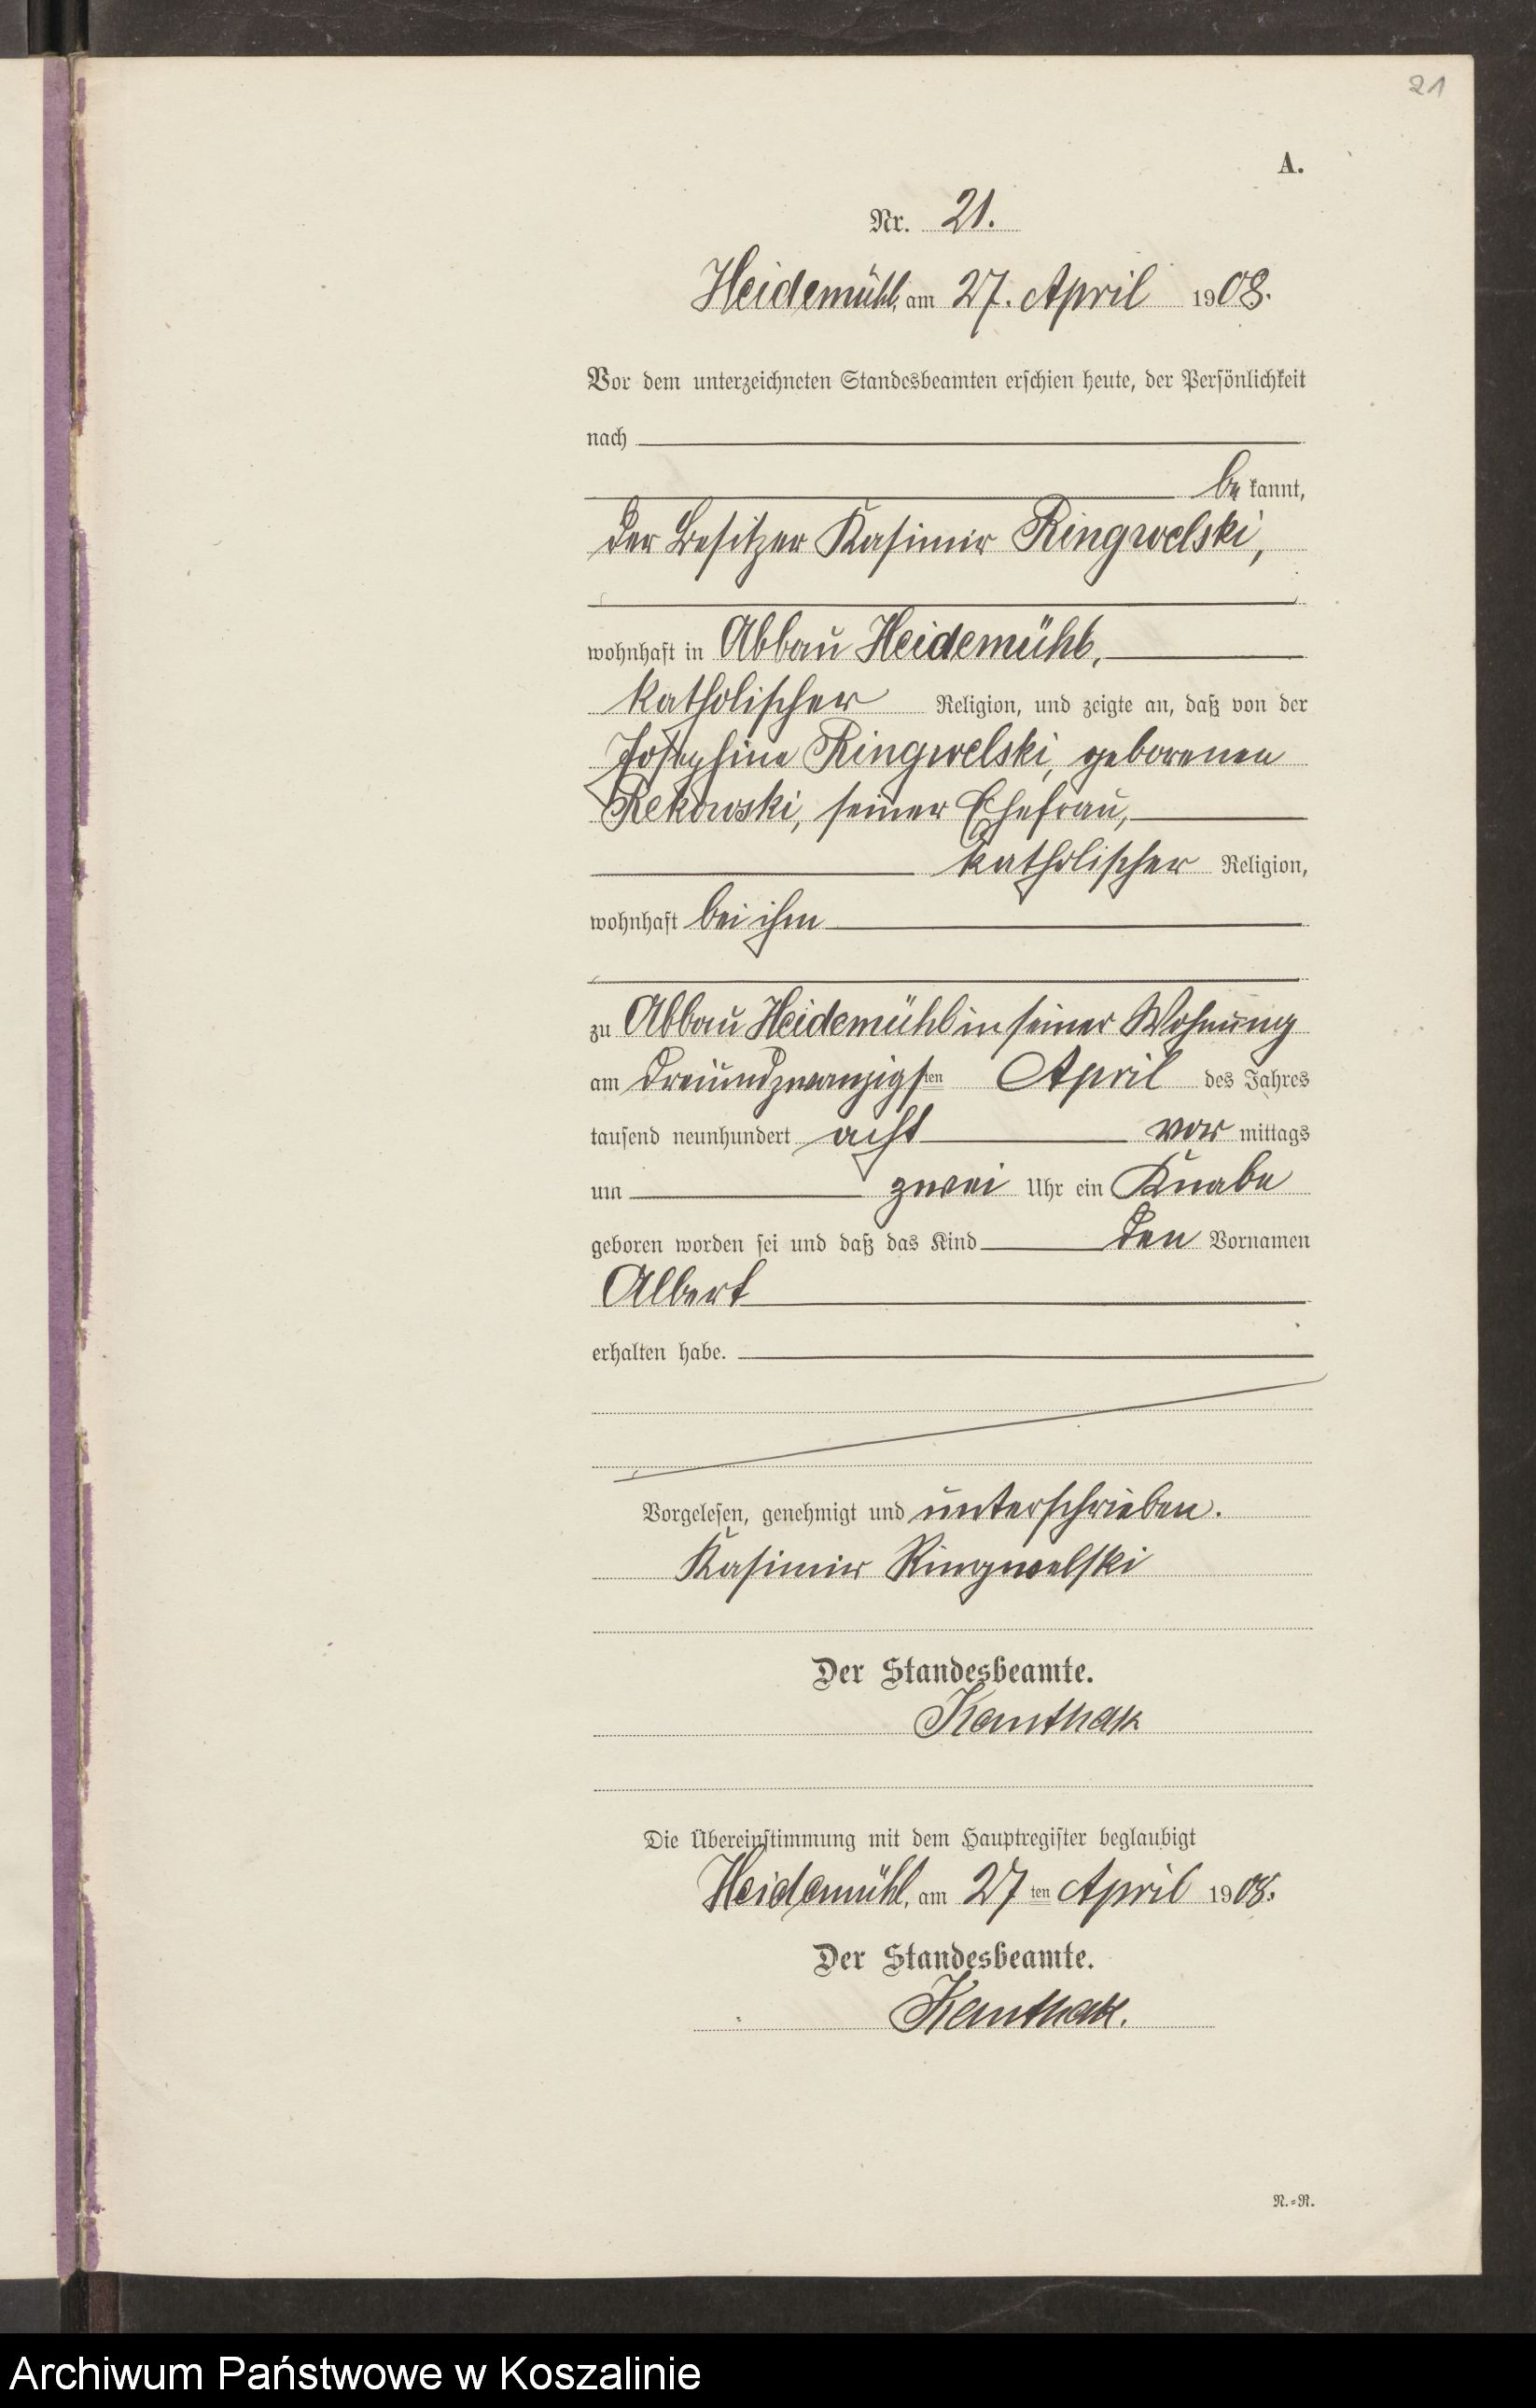 21
A.
Nr. 21.
Heidemühl, am 27. April 1908.
Vor dem unterzeichneten Standesbeamten erschien heute, der Persönlichkeit
nach
be kannt,
der Besitzer Kasimir Ringwelski,
wohnhaft in Abbau Heidemühl,
katholischer Religion, und zeigte an, daß von der
Josephine Ringwelski, geborenen
Rekowski, seiner Ehefrau,
katholischer Religion,
wohnhaft bei ihm
zu Abbau Heidemühl in seiner Wohnung
am dreiundzwanzigsten April des Jahres
tausend neunhundert acht vor mittags
um zwei Uhr ein Knabe
geboren worden sei und daß das Kind den Vornamen
Albert
erhalten habe.
Vorgelesen, genehmigt und unterschrieben.
Kasimir Ringwelski
Der Standesbeamte.
Kanthak
Die Übereinstimmung mit dem Hauptregister beglaubigt
Heidemühl, am 27 ten April 1908.
Der Standesbeamte.
Kanthak.
N.=R.
Archiwum Państwowe w Koszalinie